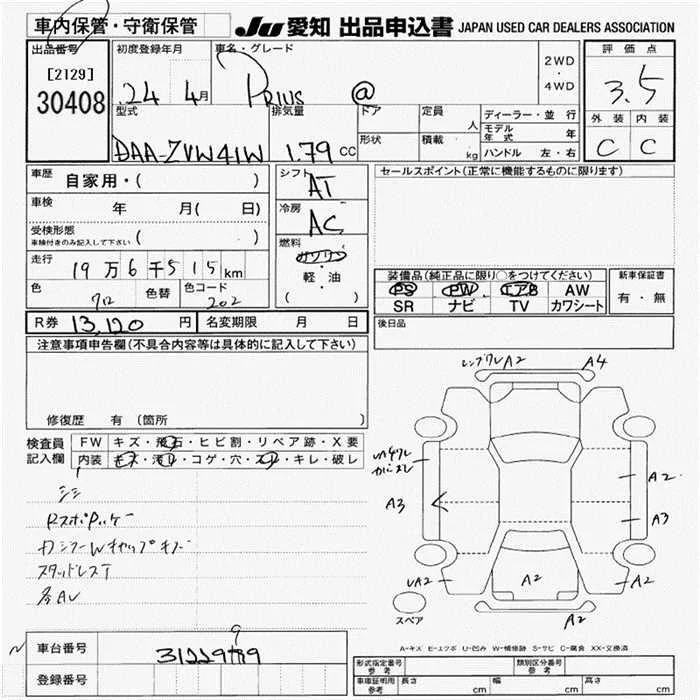 車内保管・守衛保管
JU 愛知 出品申込書 JAPAN USED CAR DEALERS ASSOCIATION
出品番号
[2129]
30408
初度登録年月
24 4月
車名・グレード
PRIUS @
2WD
・
4WD
評価点
3.5
外装 内装
C C
型式
DAA-ZVW41W
排気量
1.79 CC
ドア
形状
定員
人
積載
kg
ディーラー・並行
モデル年式 年
ハンドル 左・右
車歴 自家用・( )
車検 年 月( 日)
受検形態
車検付きのみ記入して下さい ( )
走行 19万6千515km
色 色替 色コード
202
R券 13,120 円 名変期限 月 日
シフト
AT
冷房
AC
燃料
ガソリン
・
軽・油
( )
セールスポイント(正常に機能するものに限ります)
装備品(純正品に限り○をつけてください)
PS PW エアB AW
SR ナビ TV カワシート
新車保証書
有・無
後日品
注意事項申告欄(不具合内容等は具体的に記入して下さい)
修復歴 有 (箇所 )
検査員記入欄
FW キズ・飛石・ヒビ割・リペア跡・X要
内装 キズ・汚レ・コゲ・穴・スレ・キレ・破レ
シミ
スタッドレスT
A2 A4
A3
A2
A3
UA2
A2
A2
A2
スペア
A-キズ E-エクボ U-凹み W-補修跡 S-サビ C-腐食 XX-交換済
車台番号
登録番号
形式指定番号 参考
類別区分番号 参考
車庫証明用 参考 長さ cm 幅 cm 高さ cm